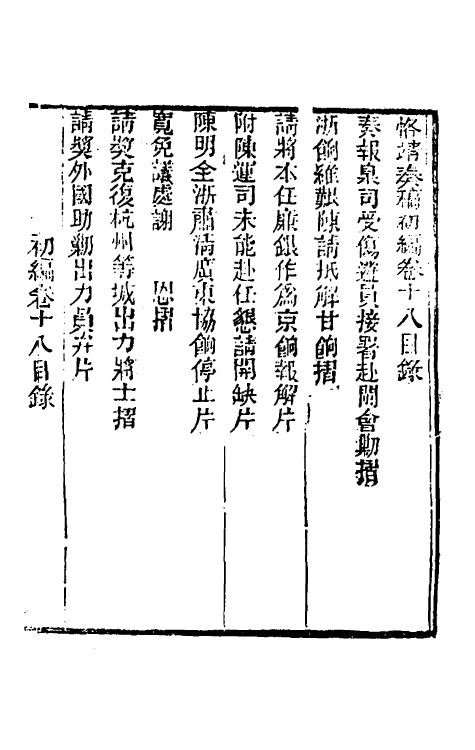 恪靖奏稿初編卷十八目錄
奏報臬司受傷遴員接署赴閩會勦摺
浙餉維艱陳請抵解甘餉摺
請將本任廉銀作爲京餉報解片
附陳運司未能赴任懇請開缺片
陳明全浙肅淸廣東協餉停止片
寬免議處謝　恩摺
請奬克復杭州等城出力將士摺
請奬外國助勦出力員弁片
初編卷十八目錄